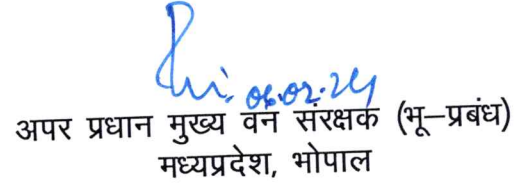 06.02.24
अपर प्रधान मुख्य वन संरक्षक (भू–प्रबंध)
मध्यप्रदेश, भोपाल